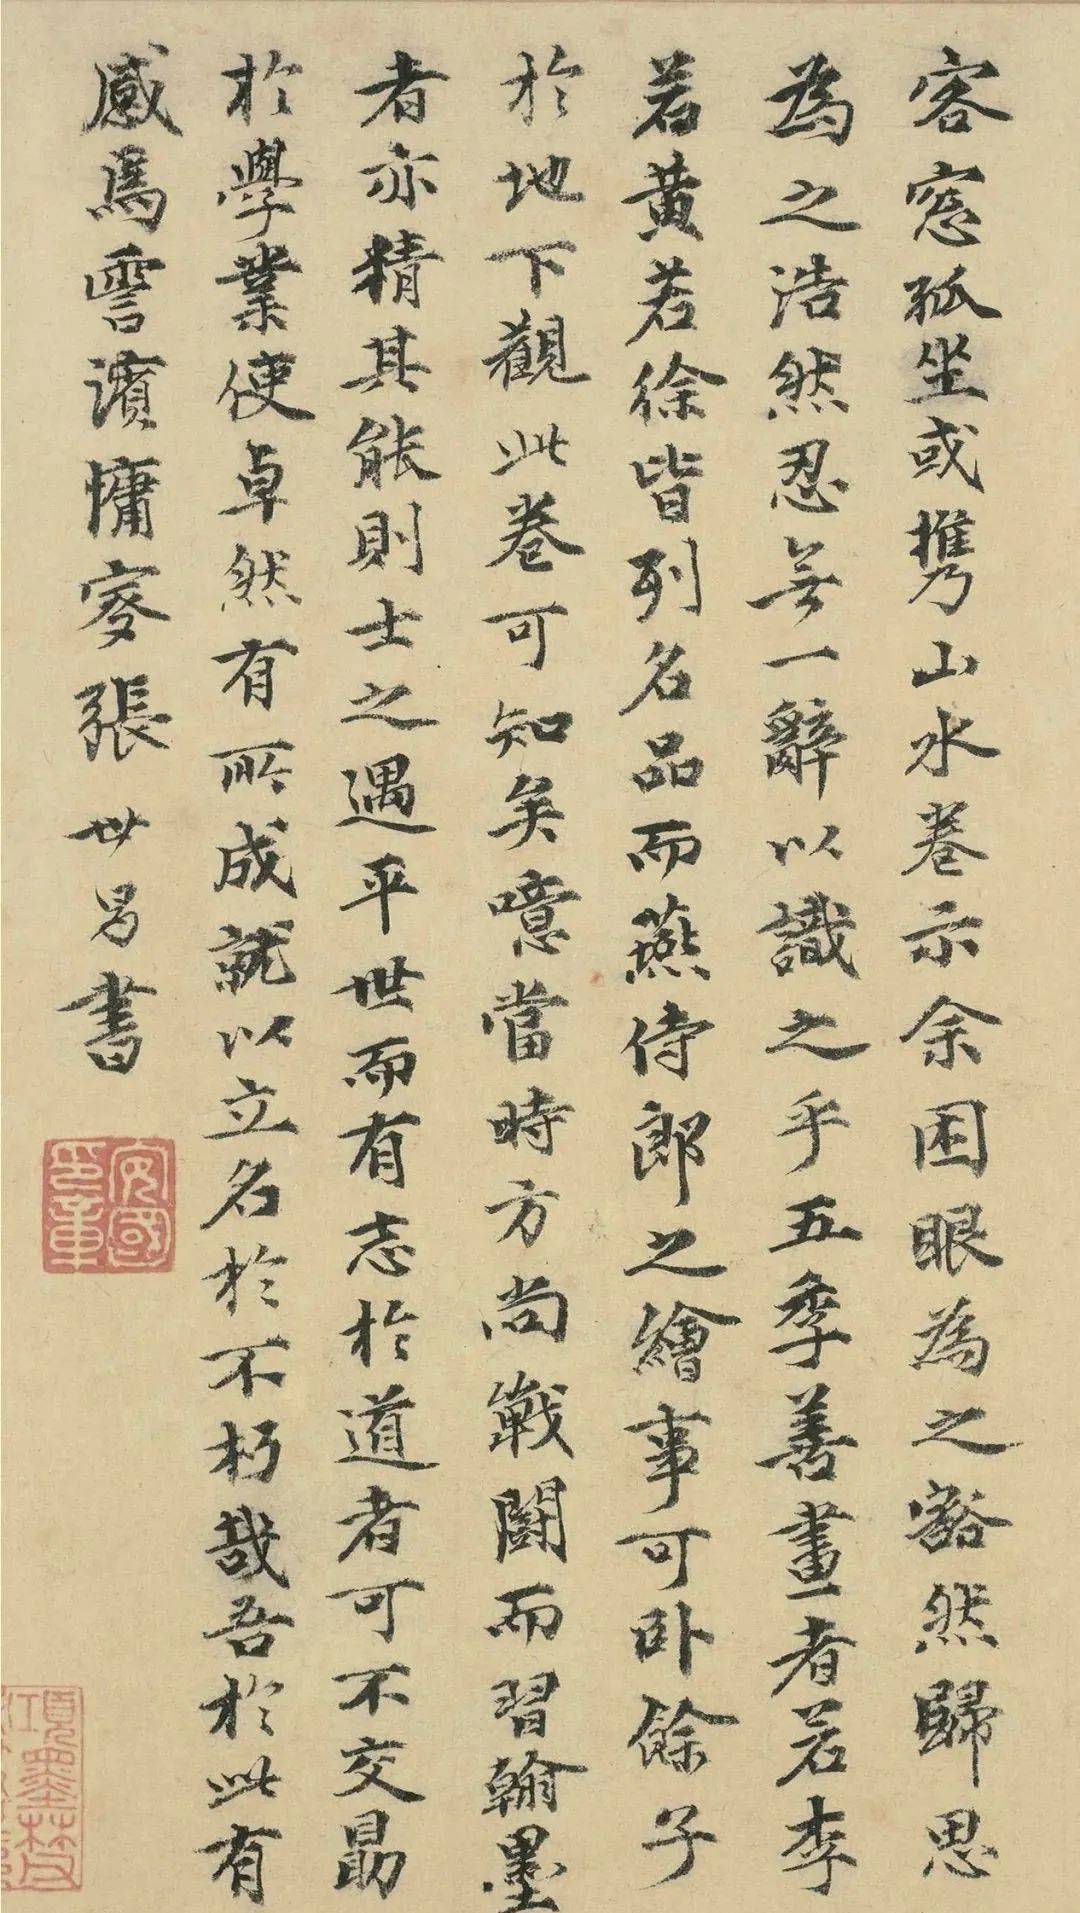 客窓孤坐或携山水卷示余困眼為之豁然歸思
為之浩然忍無一辭以識之乎五季善畫者若李
若黄若徐皆列名品而燕侍郎之繪事可卧餘子
於地下觀此卷可知矣噫當時方尚戰鬪而習翰墨
者亦精其能則士之遇平世而有志於道者可不交勗
於學業使卓然有所成就以立名於不朽哉吾於此有
感焉雪濱慵叟張世昌書
安國